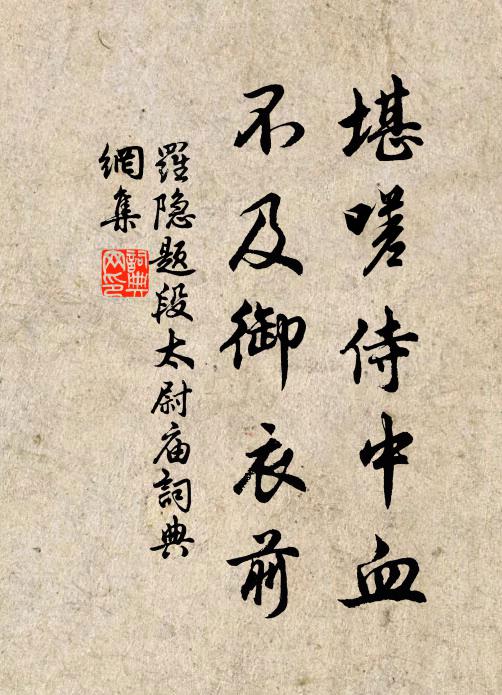 堪嗟侍中血
不及御衣前
羅隐题段太尉庙詞典
網集
詞典网印